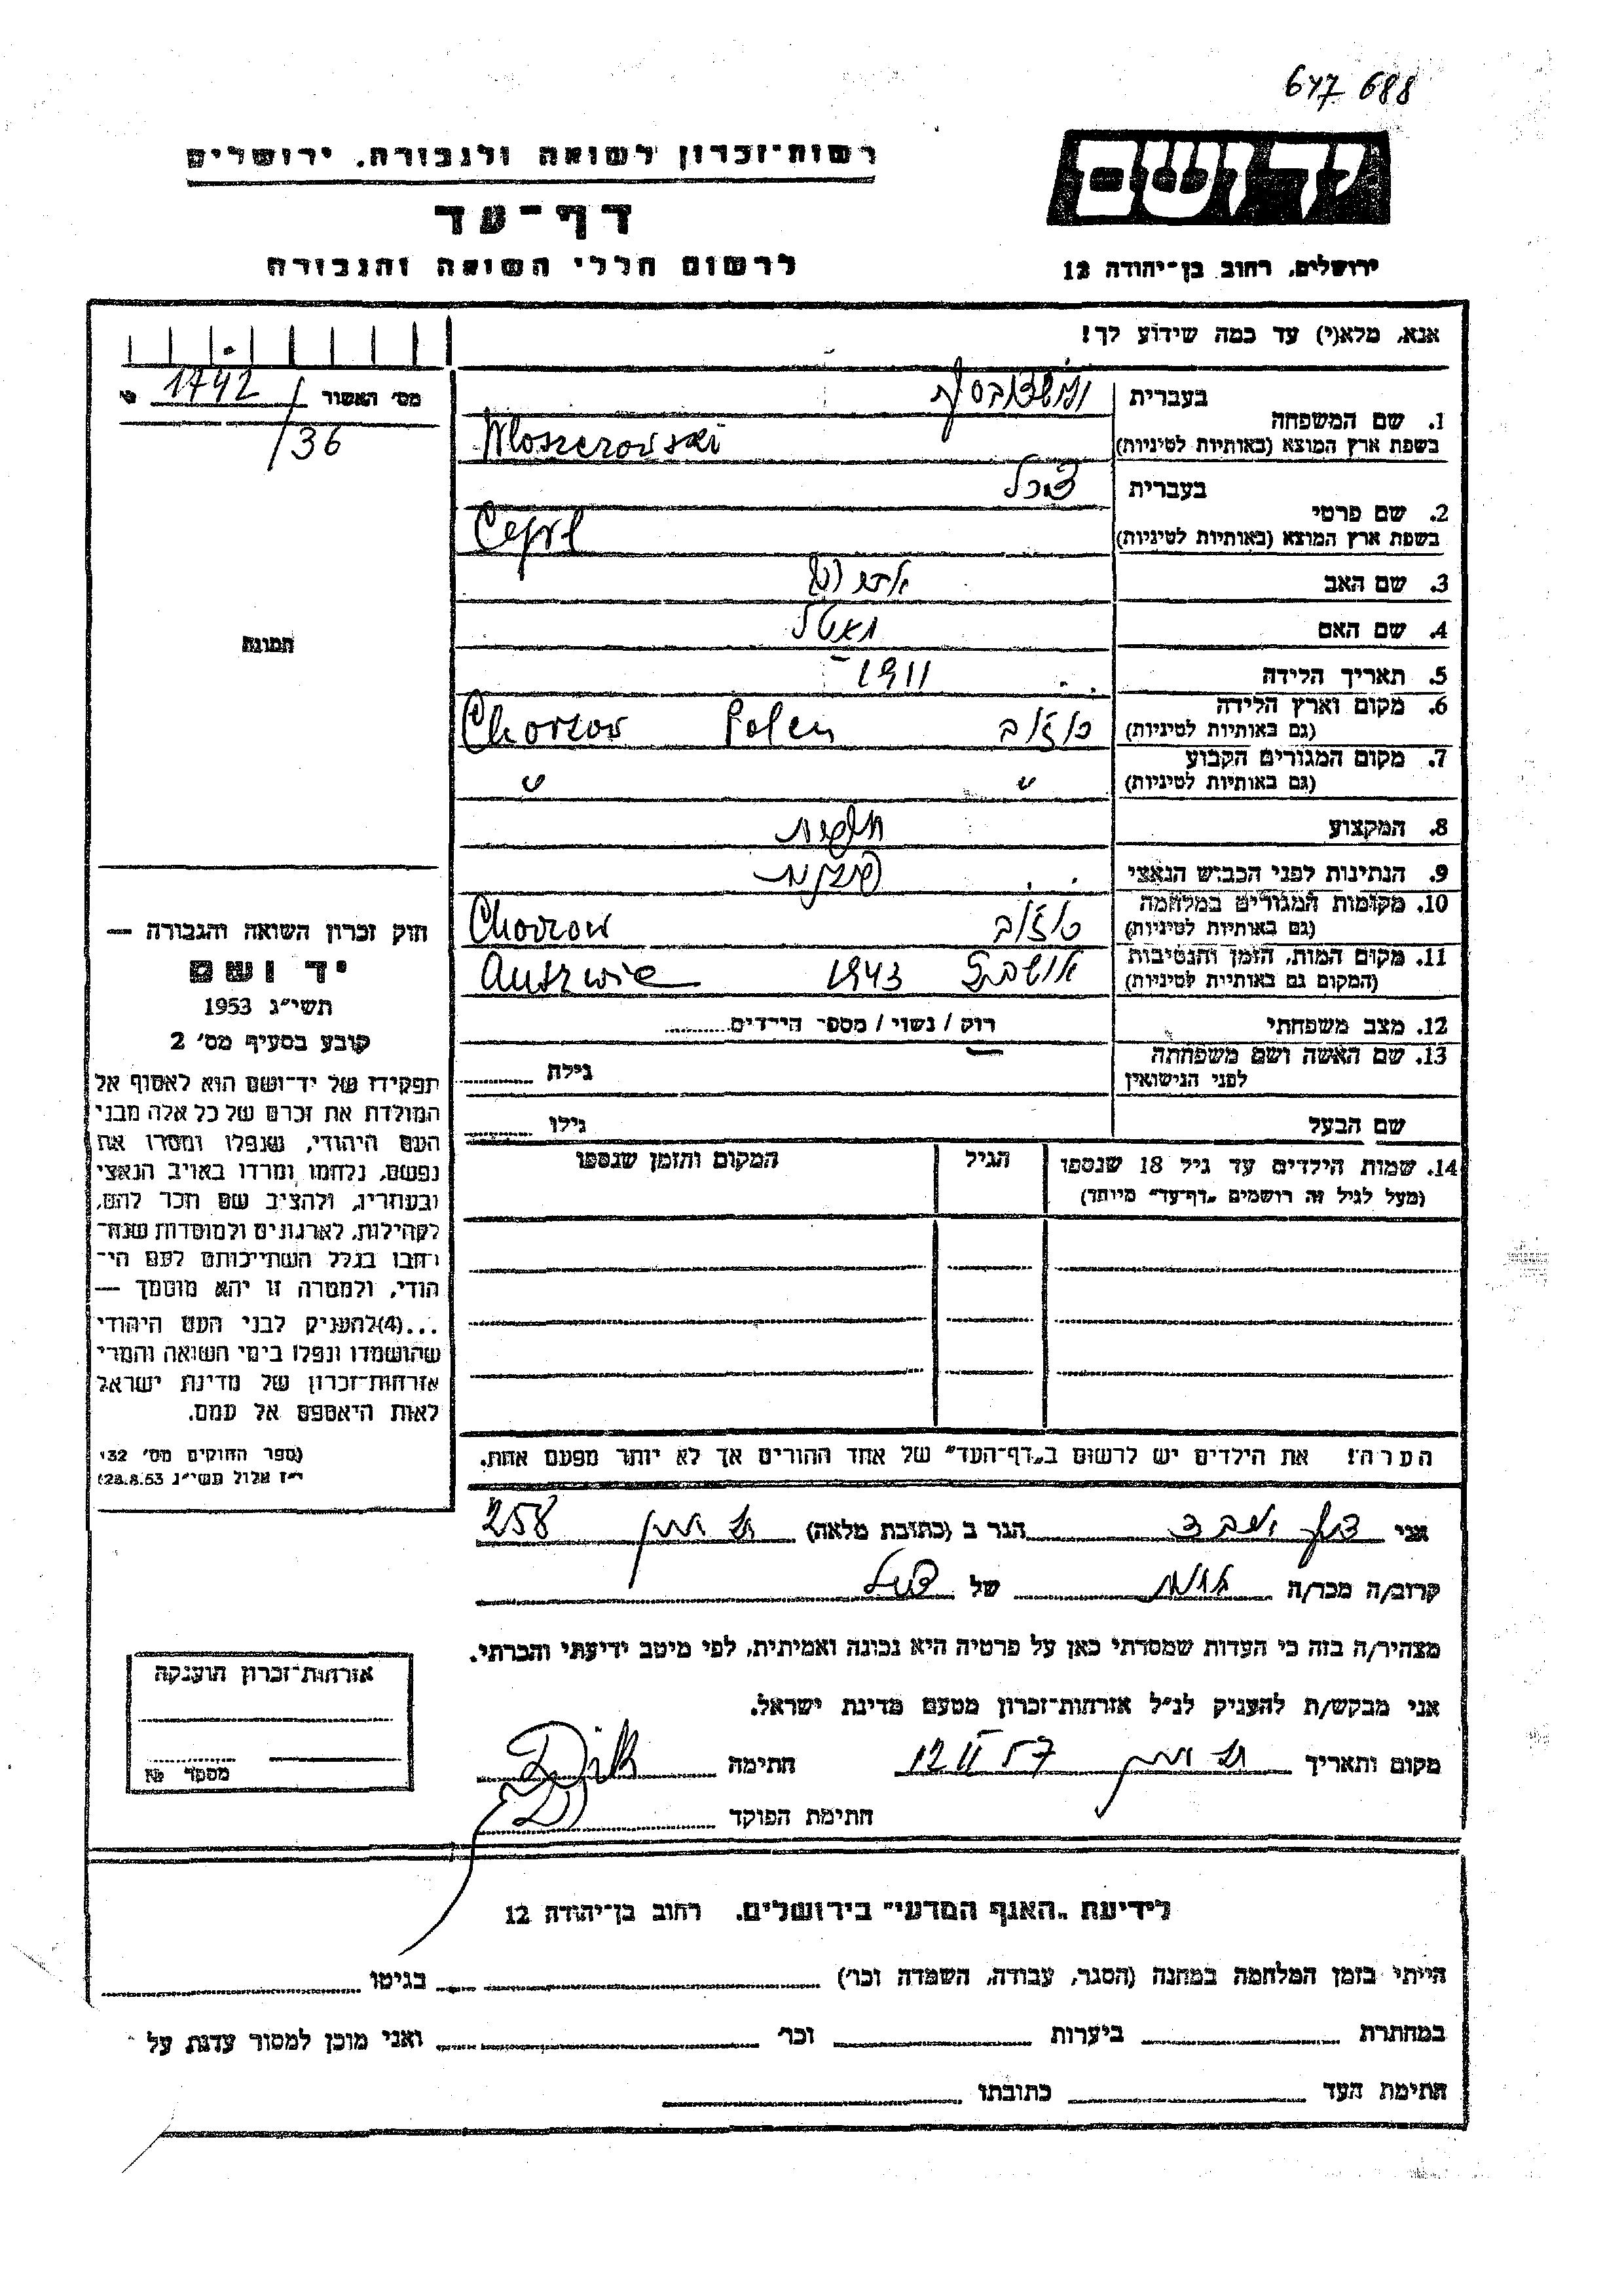 647 688
יד ושם
רשות-זכרון לשואה ולגבורה, ירושלים
דף-עד
לרשום חללי השואה והגבורה
ירושלים, רחוב בן-יהודה 12
אנא, מלא(י) עד כמה שידוע לך!
מס' האשור 1742
/36
תמונה
1. שם המשפחה בעברית
בשפת ארץ המוצא (באותיות לטיניות) Wloszczowski
2. שם פרטי בעברית
בשפת ארץ המוצא (באותיות לטיניות)
3. שם האב
4. שם האם
5. תאריך הלידה 1911
6. מקום וארץ הלידה
(גם באותיות לטיניות) Polen Chorzow
7. מקום המגורים הקבוע
(גם באותיות לטיניות) " "
8. המקצוע
9. הנתינות לפני הכבוש הנאצי
10. מקומות המגורים במלחמה
(גם באותיות לטיניות) Chorzow
11. מקום המות, הזמן והנסיבות
(המקום גם באותיות לטיניות) 1943
12. מצב משפחתי רוק / נשוי / מספר הילדים
13. שם האשה ושם משפחתה
לפני הנישואין גילה
שם הבעל גילו
14. שמות הילדים עד גיל 18 שנספו הגיל המקום והזמן שנספו
(מעל לגיל זה רושמים „דף-עד" מיוחד)
הערה: את הילדים יש לרשום ב„דף-העד" של אחד ההורים אך לא יותר מפעם אחת.
חוק זכרון השואה והגבורה —
יד ושם
תשי"ג 1953
קובע בסעיף מס' 2
תפקידו של יד-ושם הוא לאסוף אל
המולדת את זכרם של כל אלה מבני
העם היהודי, שנפלו ומסרו את
נפשם, נלחמו ומרדו באויב הנאצי
ובעוזריו, ולהציב שם וזכר להם,
לקהילות, לארגונים ולמוסדות שנח-
רבו בגלל השתייכותם לעם הי-
הודי, ולמטרה זו יהא מוסמך —
...(4)להעניק לבני העם היהודי
שהושמדו ונפלו בימי השואה והמרי
אזרחות-זכרון של מדינת ישראל
לאות היאספם אל עמם.
(ספר החוקים מס' 132
י"ז אלול תשי"ג 28.8.53)
אני הגר ב (כתובת מלאה) 258
קרוב/ה מכר/ה של
מצהיר/ה בזה כי העדות שמסרתי כאן על פרטיה היא נכונה ואמיתית, לפי מיטב ידיעתי והכרתי.
אני מבקש/ת להעניק לנ"ל אזרחות-זכרון מטעם מדינת ישראל.
מקום ותאריך 12 II 57 חתימה
חתימת הפוקד
אזרחות-זכרון הוענקה
מספר №
לידיעת „האגף המדעי" בירושלים. רחוב בן-יהודה 12
הייתי בזמן המלחמה במחנה (הסגר, עבודה, השמדה וכו') בגיטו
במחתרת ביערות וכו' ואני מוכן למסור עדות על
חתימת העד כתובתו